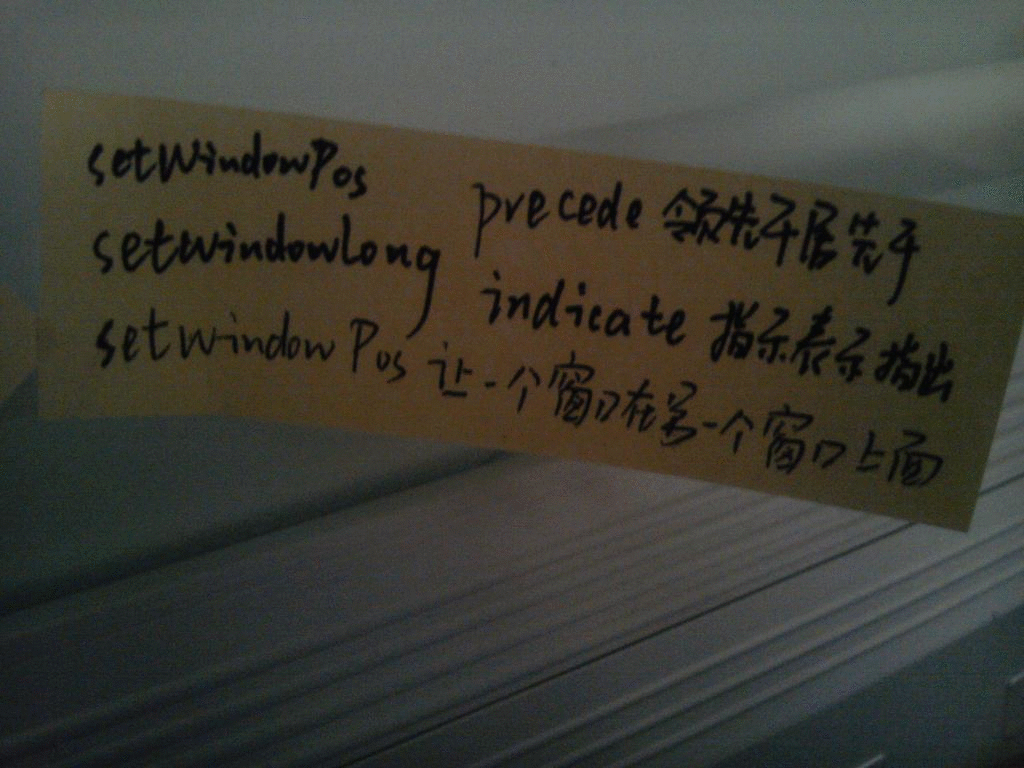 setWindowPos
setwindowLong
precede 领先于居先于
indicate 指示表示指出
setwindowPos 让一个窗口在另一个窗口上面